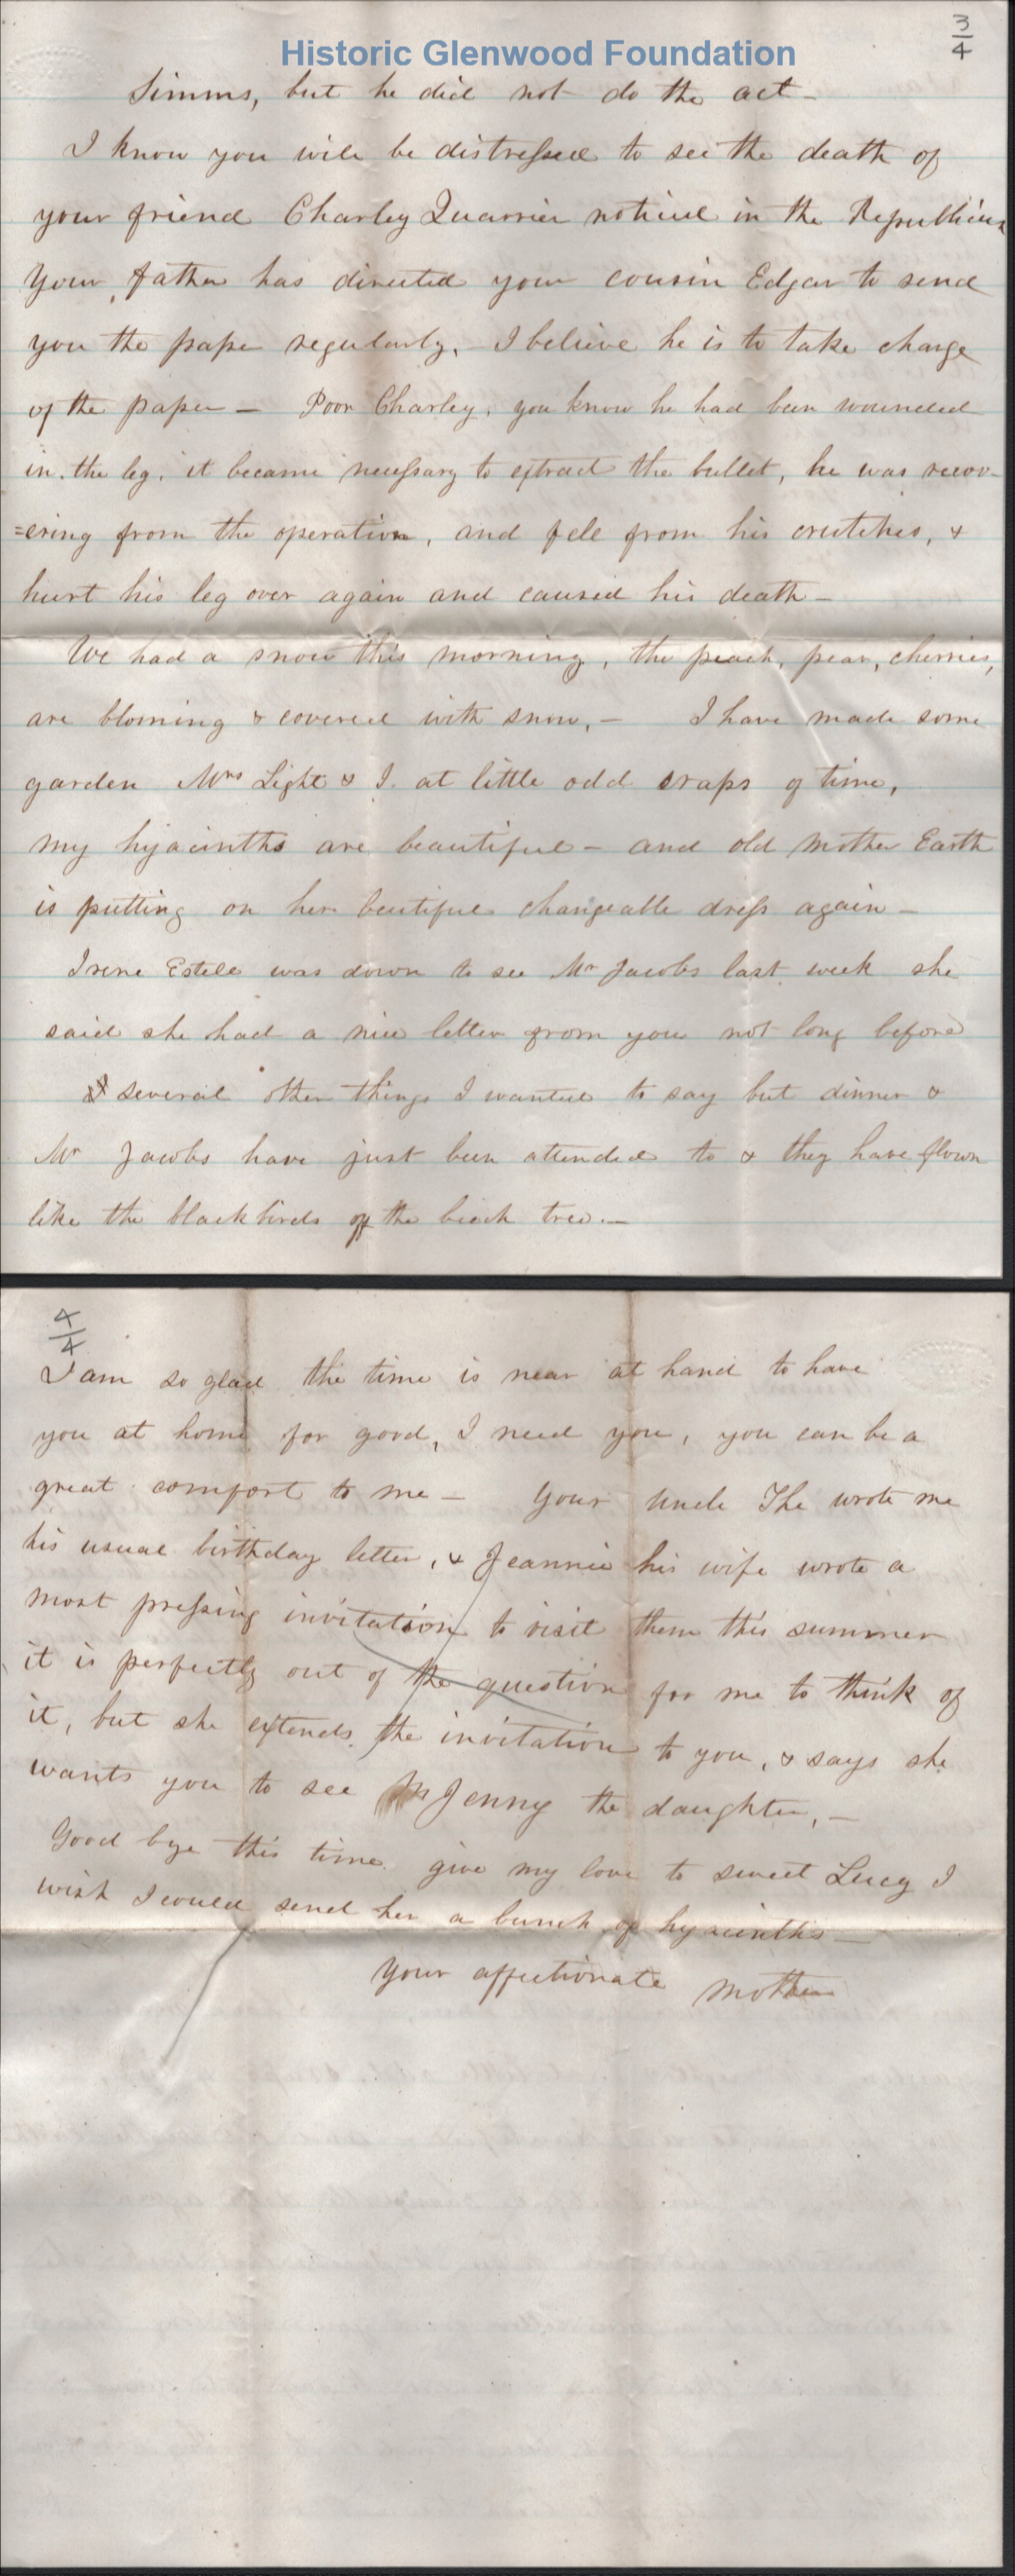 3/4
Historic Glenwood Foundation
Simms, but he did not do the act —
I know you will be distressed to see the death of
your friend Charley Quarrier noticed in the Republican
Your father has directed your cousin Edgar to send
you the paper regularly, I believe he is to take charge
of the paper — Poor Charley, you know he had been wounded
in the leg, it became necessary to extract the bullet, he was recov-
=ering from the operation, and fell from his crutches, &
hurt his leg over again and caused his death —
We had a snow this morning, the peach, pear, cherries,
are blooming & covered with snow, — I have made some
garden Mrs Light & I at little odd scraps of time,
my hyacinths are beautiful — and old Mother Earth
is putting on her beutiful changeable dress again —
Irene Estele was down to see Mr Jacobs last week she
said she had a nice letter from you not long before
several other things I wanted to say but dinner &
Mr Jacobs have just been attended to & they have flown
like the blackbirds off the beach tree. —
4/4
I am so glad the time is near at hand to have
you at home for good, I need you, you can be a
great comfort to me — Your Uncle The wrote me
his usual birthday letter, & Jeannie his wife wrote a
most pressing invitation to visit them this summer
it is perfectly out of the question for me to think of
it, but she extends the invitation to you, & says she
wants you to see Jenny the daughter, —
Good bye this time give my love to sweet Lucy I
wish I could send her a bunch of hyacinths —
Your affectionate Mother